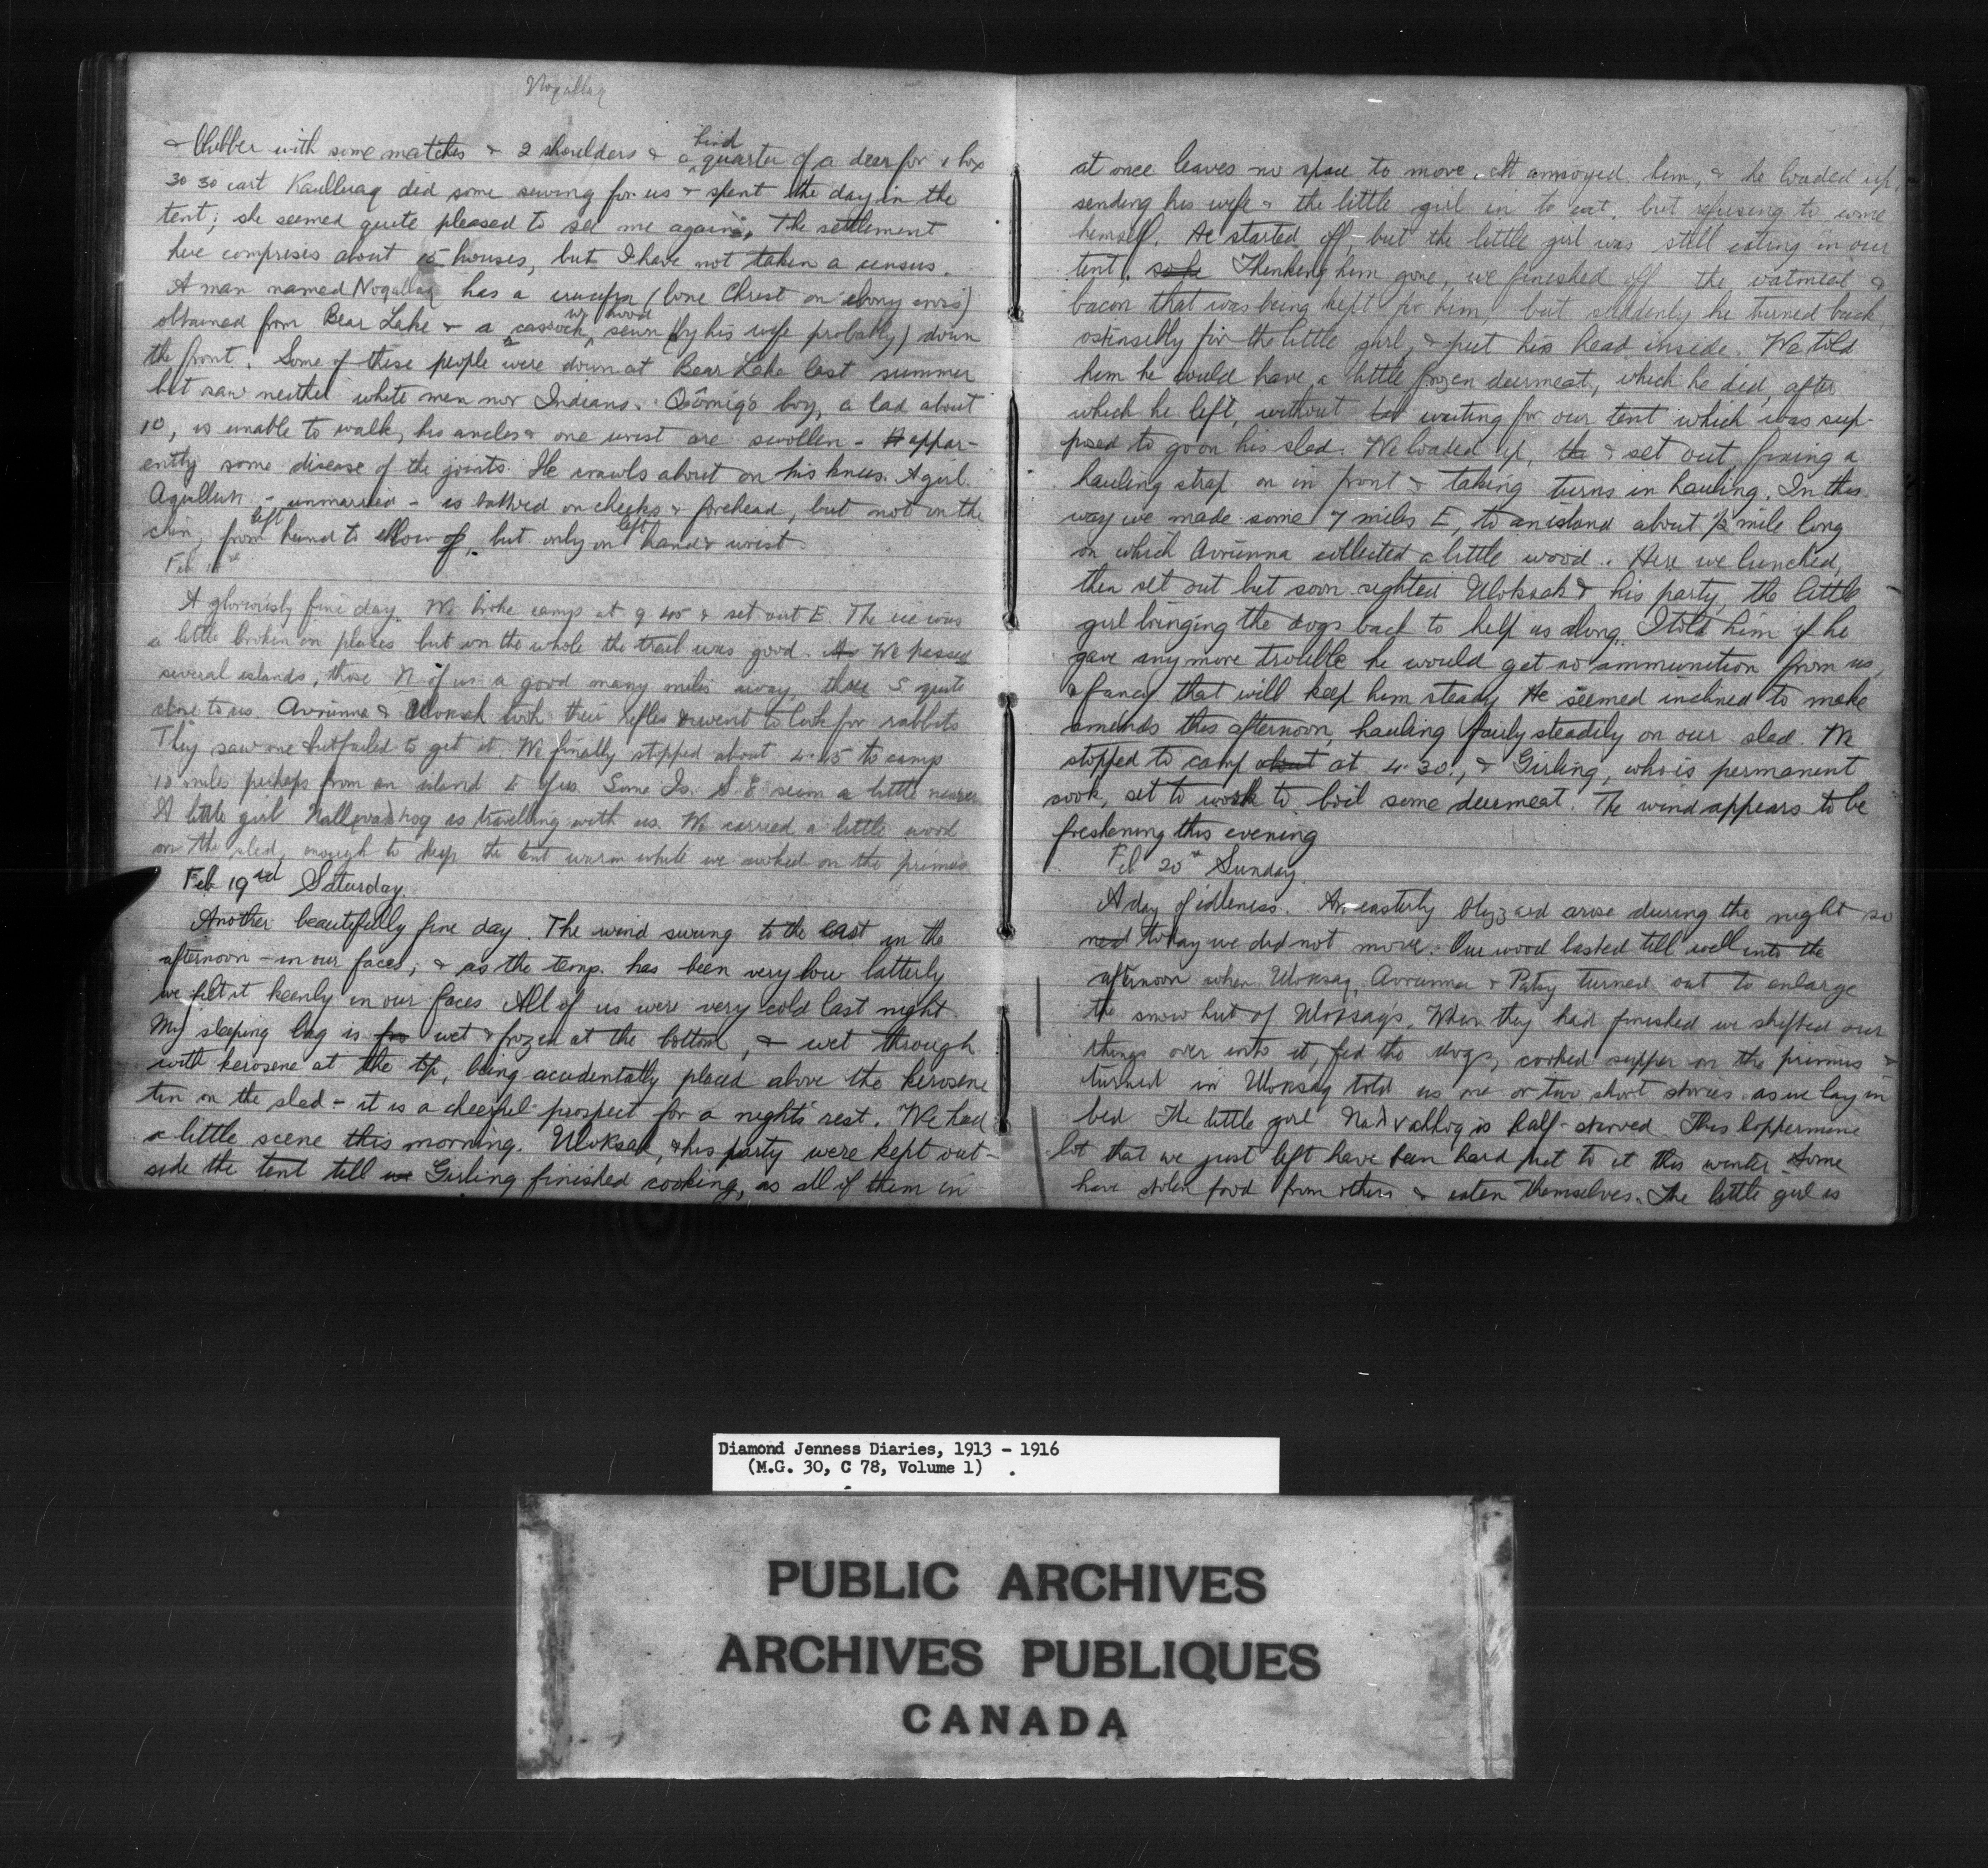 Noqallaq
& blubber with some matches & 2 shoulders & a hind quarter of a deer for 1 box
30 30 cart Kaulluaq did some sewing for us & spent the day in the
tent; she seemed quite pleased to see me again. The settlement
here comprises about 15 houses, but I have not taken a census.
A man named Noqallaq has a crucifix (bone Christ on ebony cross)
obtained from Bear Lake & a cassock, w. hood sewn (by his wife probably) down
the front. Some of these people were down at Bear Lake last summer
but saw neither white men nor Indians. boy, a lad about
10, is unable to walk, his ancles & one wrist are swollen - appar-
ently some disease of the joints. He crawls about on his knees. A girl
- unmarried - is tattooed on cheeks & forehead, but not on the
chin, from left hand to elbow but only on left hand & wrist.
Feb 18
A gloriously fine day. We broke camp at 9.45 & set out E. The ice was
a little broken in places but on the whole the trail was good. As We passed
several islands, those N of us a good many miles away, those S quite
close to us. Avrunna & Uloksak took their rifles & went to look for rabbits
They saw one but failed to get it. We finally stopped about 4.45 to camp
10 miles perhaps from an island E of us. Some Is. S E seem a little nearer
A little girl is travelling with us. We carried a little wood
on the sled, enough to keep the tent warm while we cooked on the primus
Feb 19rd Saturday
Another beautifully fine day. The wind swung to the east in the
afternoon - in our faces; & as the temp. has been very low latterly
we felt it keenly in our faces. All of us were very cold last night
My sleeping bag is wet & frozen at the bottom, & wet through
with kerosene at the top, being accidentally placed above the kerosene
tin on the sled - it is a cheerful prospect for a night's rest. We had
a little scene this morning. Uloksak, & his party were kept out-
side the tent till we Girling finished cooking, as all of them in
at once leaves no space to move. It annoyed him, & he loaded up,
sending his wife & the little girl in to eat, but refusing to come
himself. He started off, but the little girl was still eating in our
tent. so he Thinking him gone, we finished off the oatmeal &
bacon that was being kept for him, but suddenly he turned back,
ostensibly for the little girl, & put his head inside. We told
him he could have a little frozen deermeat, which he did, after
which he left, without waiting for our tent which was sup-
posed to go on his sled. We loaded up, the & set out fixing a
hauling strap on in front & taking turns in hauling. In this
way we made some 7 miles E, to an island about ½ mile long
on which Avrunna collected a little wood. Here we lunched,
then set out but soon sighted Uloksak & his party, the little
girl bringing the dogs back to help us along. I told him if he
gave any more trouble he would get no ammunition from us,
& fancy that will keep him steady He seemed inclined to make
amends this afternoon, hauling fairly steadily on our sled. We
stopped to camp about at 4.30., & Girling, who is permanent
cook, set to work to boil some deermeat. The wind appears to be
freshening this evening
Feb 20th Sunday
A day of idleness. An easterly blizzard arose during the night so
today we did not move. Our wood lasted till well into the
afternoon when Uloksaq, Avrunna & Patsy turned out to enlarge
the snow hut of Uloksaq's. When they had finished we shifted our
things over into it, fed the dogs, cooked supper on the primus &
turned in Uloksaq told us one or two short stories as we lay in
bed The little girl is half-starved. This Coppermine
lot that we just left have been hard put to it this winter - Some
have stolen food from others & eaten themselves. The little girl is
Diamond Jenness Diaries, 1913 - 1916
(M.G. 30, C 78, Volume 1) .
PUBLIC ARCHIVES
ARCHIVES PUBLIQUES
CANADA